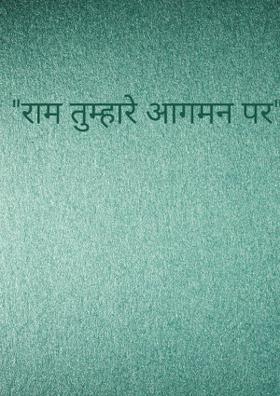 "राम तुम्हारे आगमन पर"